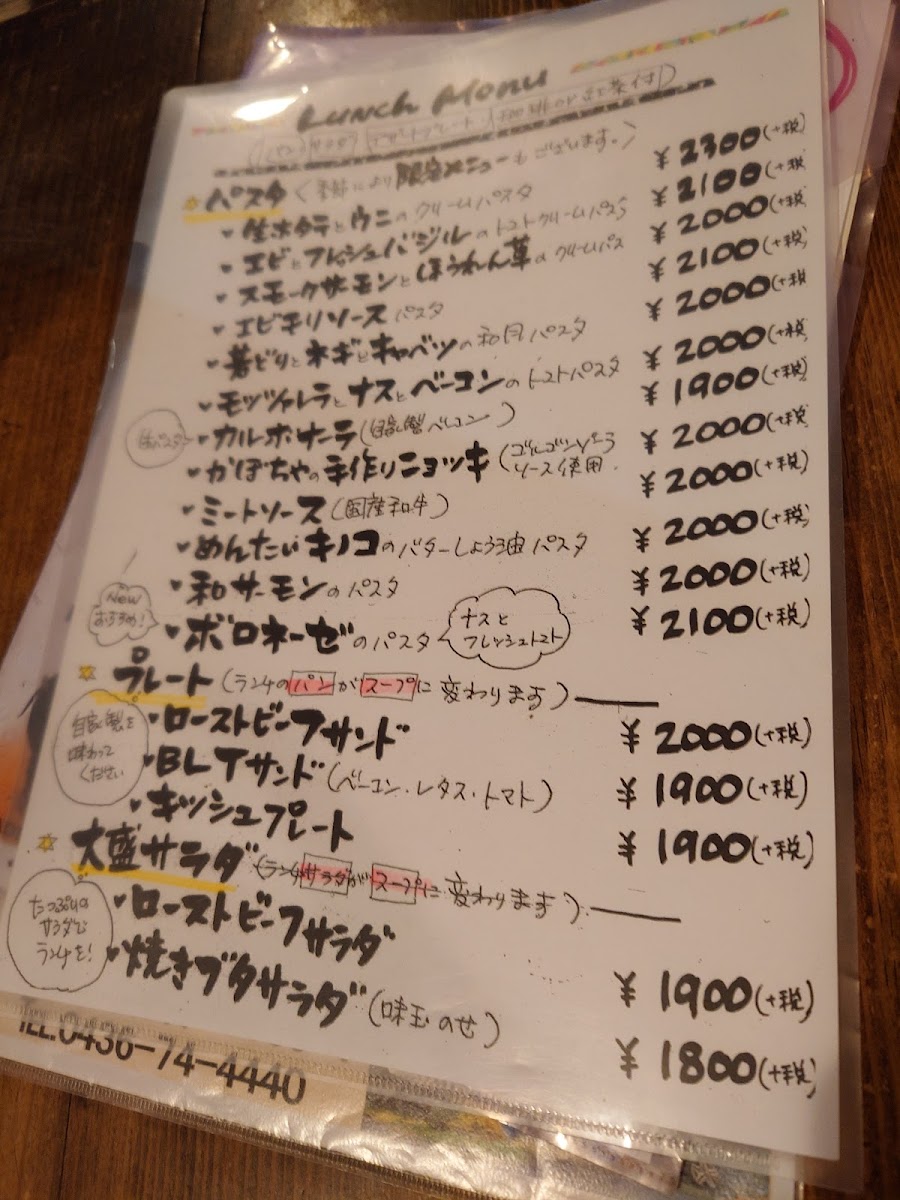 Lunch Menu
(パン サラダ デザートプレート 珈琲 or 紅茶付)
パスタ (季節により限定メニューもございます。)
・生ホタテとウニのクリームパスタ ¥2300(+税)
・エビとフレッシュバジルのトマトクリームパスタ ¥2100(+税)
・スモークサーモンとほうれん草のクリームパス ¥2000(+税)
・エビチリソースパスタ ¥2100(+税)
・若どりとネギとキャベツの和風パスタ ¥2000(+税)
・モッツァレラとナスとベーコンのトマトパスタ ¥2000(+税)
・カルボナーラ(自家製ベーコン) ¥1900(+税)
生パスタ
・かぼちゃの手作りニョッキ(ゴルゴンゾーラ ¥2000(+税)
ソース使用
・ミートソース(国産和牛) ¥2000(+税)
・めんたいキノコのバターしょう油パスタ ¥2000(+税)
・和サーモンのパスタ ¥2000(+税)
New
おすすめ!
・ボロネーゼのパスタ ¥2100(+税)
ナスと
フレッシュトマト
プレート (ランチのパンがスープに変わります)
自家製を
味わって
ください
・ローストビーフサンド ¥2000(+税)
・BLTサンド(ベーコン・レタス・トマト) ¥1900(+税)
・キッシュプレート ¥1900(+税)
大盛サラダ (ランチサラダがスープに変わります)
たっぷりの
サラダで
ランチを!
・ローストビーフサラダ ¥1900(+税)
・焼きブタサラダ(味玉のせ) ¥1800(+税)
TEL.0436-74-4440